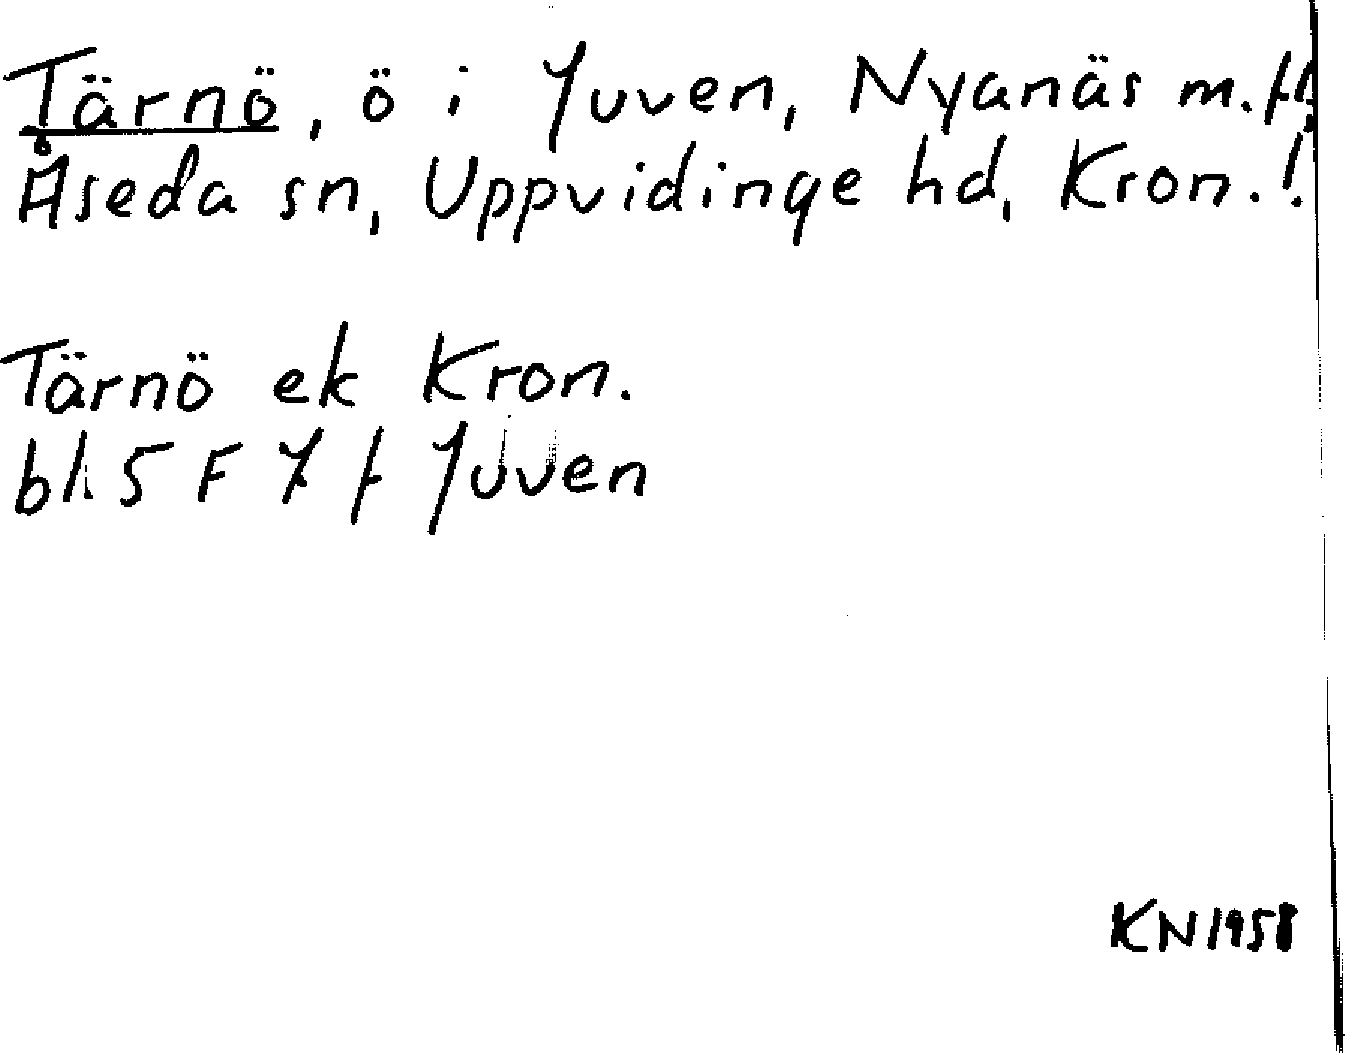 Tärnö, ö i Juven, Nyanäs m.fl.,
Åseda sn, Uppvidinge hd, Kron.!
Tärnö ek Kron.
bl. 5 F 7 f Juven
KN 1958